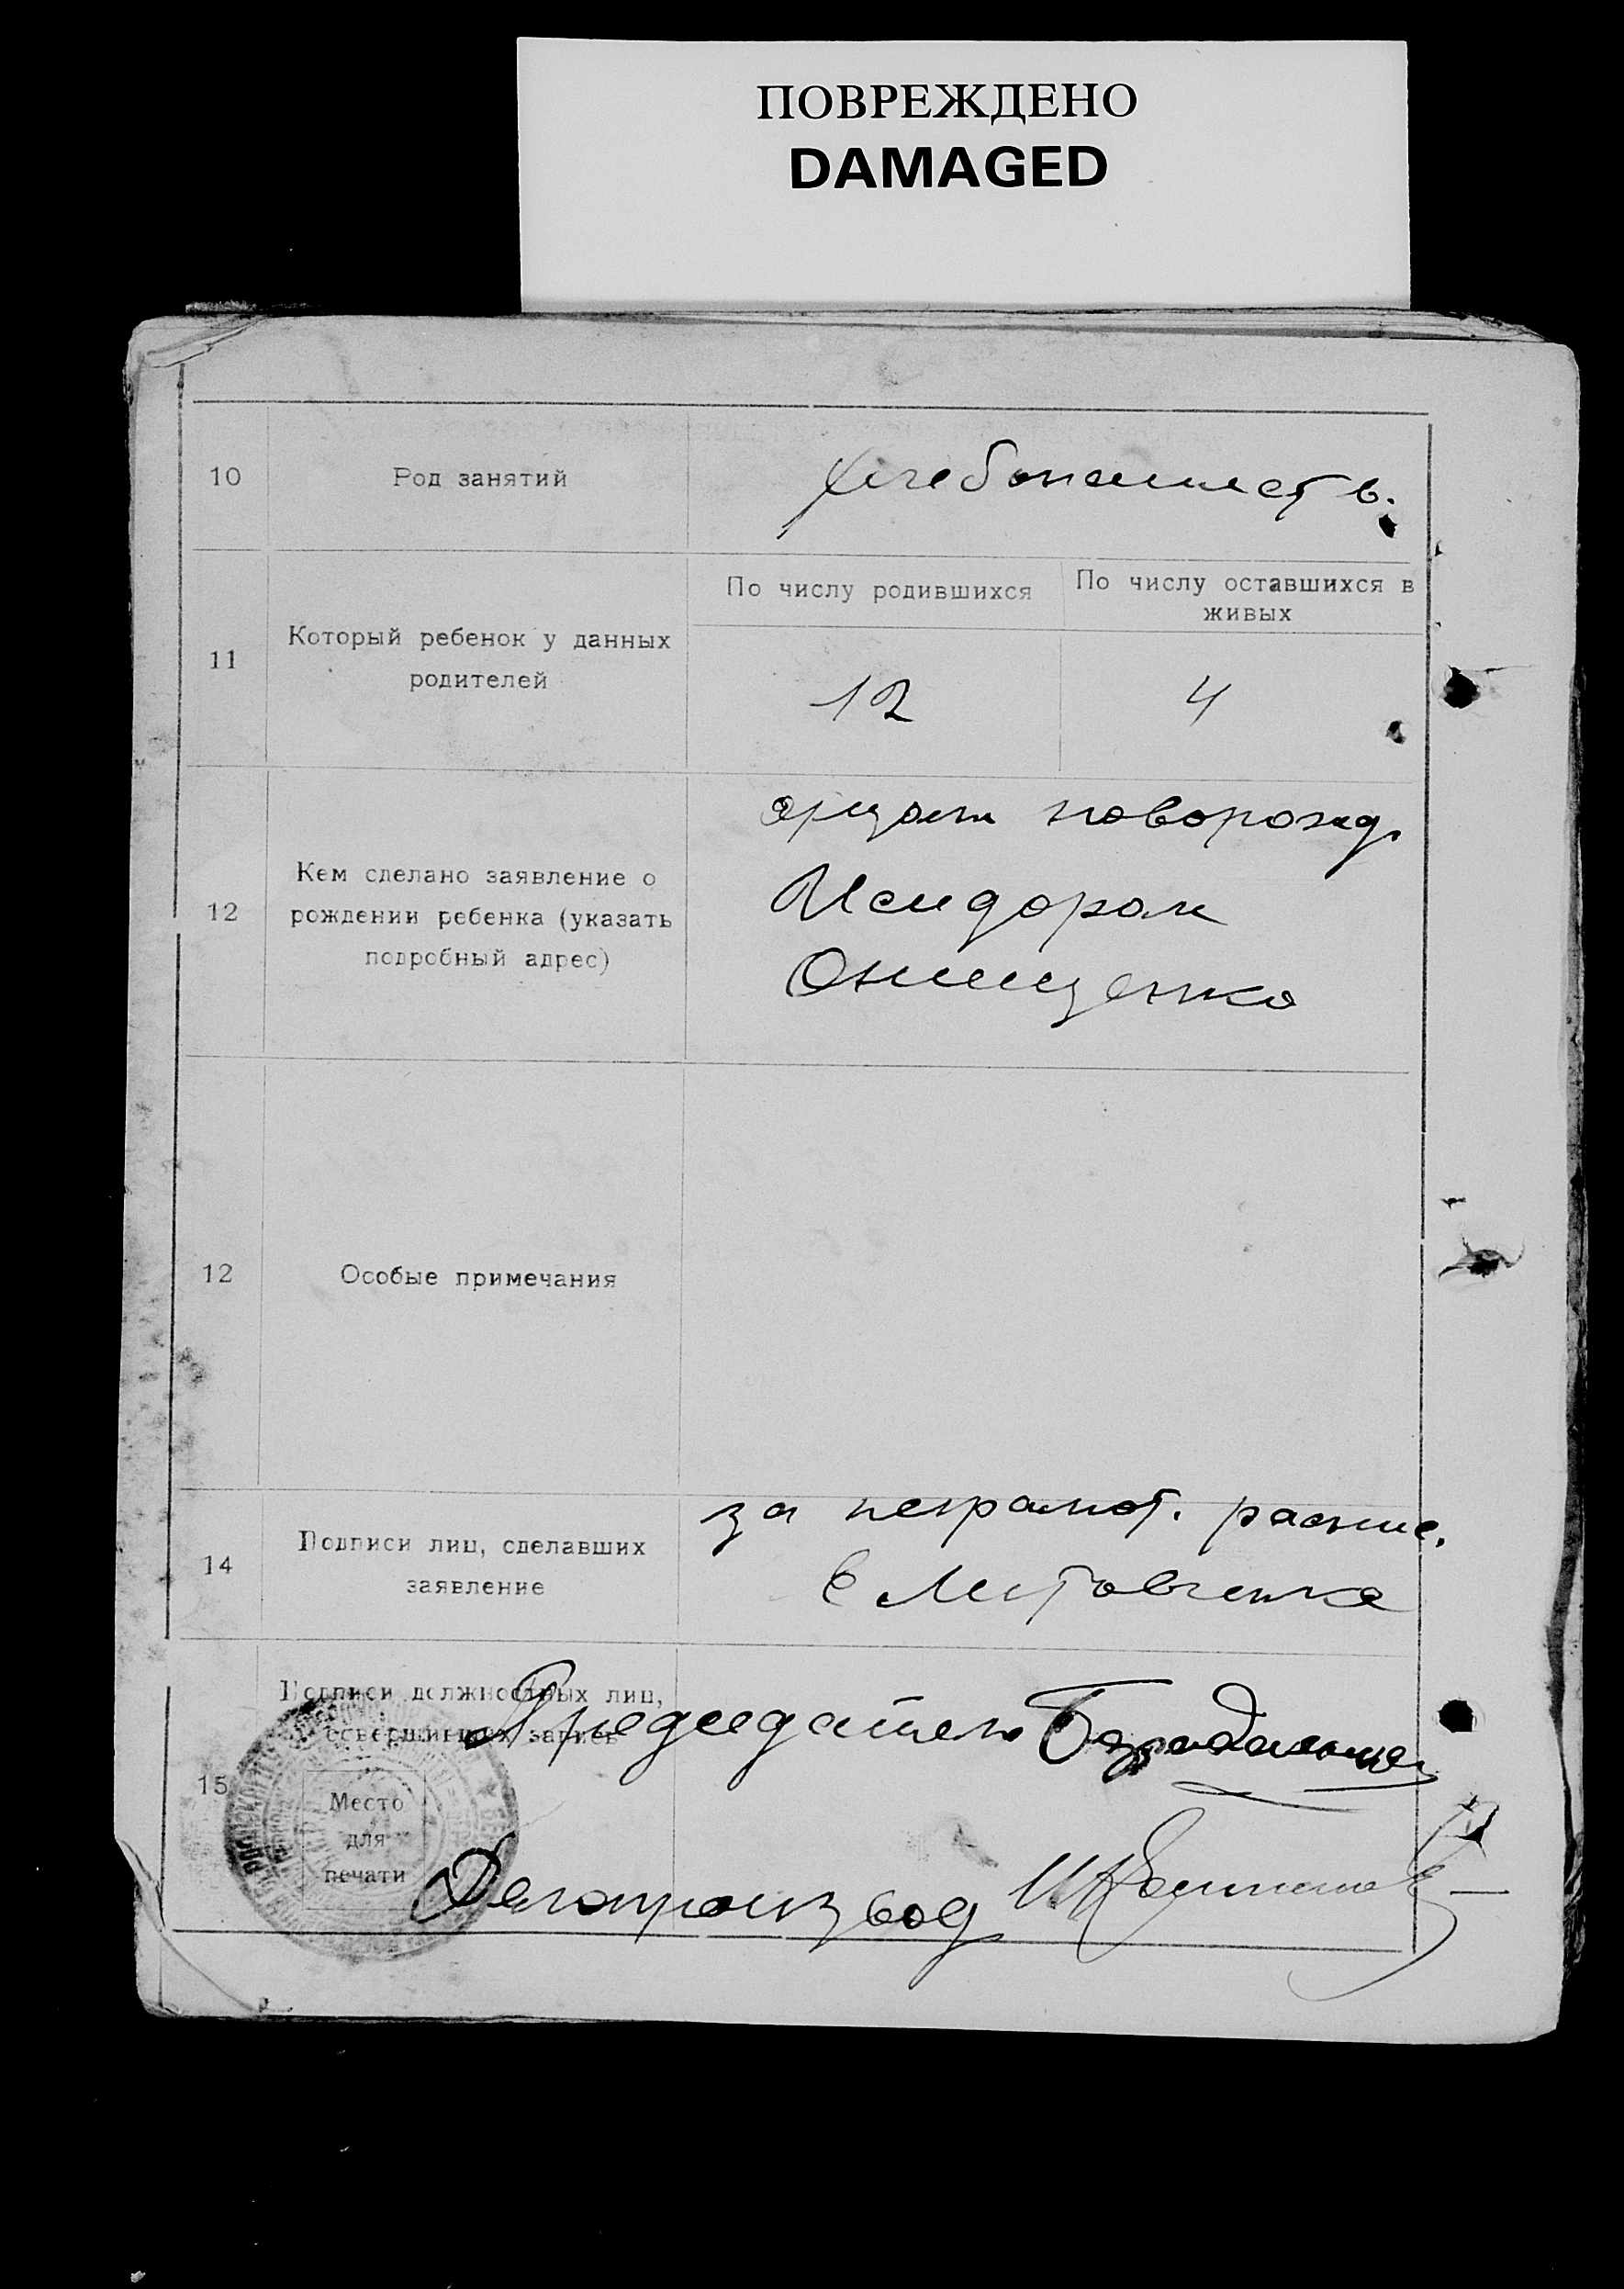 ПОВРЕЖДЕНО
DAMAGED
10
Род занятий
хлебопашеств.
11
Который ребенок у данных
родителей
По числу родившихся
По числу оставшихся в
живых
12
4
12
Кем сделано заявление о
рождении ребенка (указать
подробный адрес)
отцом новорожд.
Исидором
Онищенко
12
Особые примечания
14
Подписи лиц, сделавших
заявление
за неграмот. распис.
Е Литовченко
15
Подписи должностных лиц,
совершивших запись
Председатель
Место
для
печати
Делопроизвод